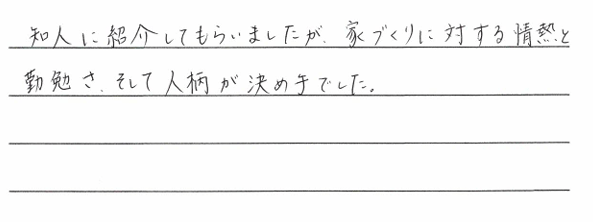 知人に紹介してもらいましたが、家づくりに対する情熱と
勤勉さ、そして人柄が決め手でした。